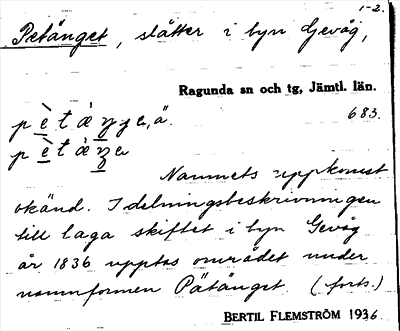 1-2.
Petånget, slåtter i byn Gevåg,
Ragunda sn och tg, Jämtl. län.
683.
Namnets uppkomst
okänd. I delningsbeskrivningen
till laga skiftet i byn Gevåg
år 1836 upptas området under
namnformen Pätånget. (forts.)
BERTIL FLEMSTRÖM 1936.